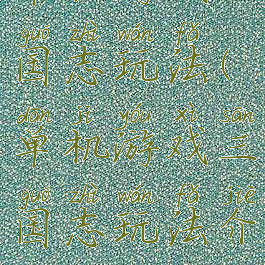 guó zhì wán fǎ
国志玩法(
dān jī yóu xì sān
单机游戏三
guó zhì wán fǎ jiè
国志玩法介